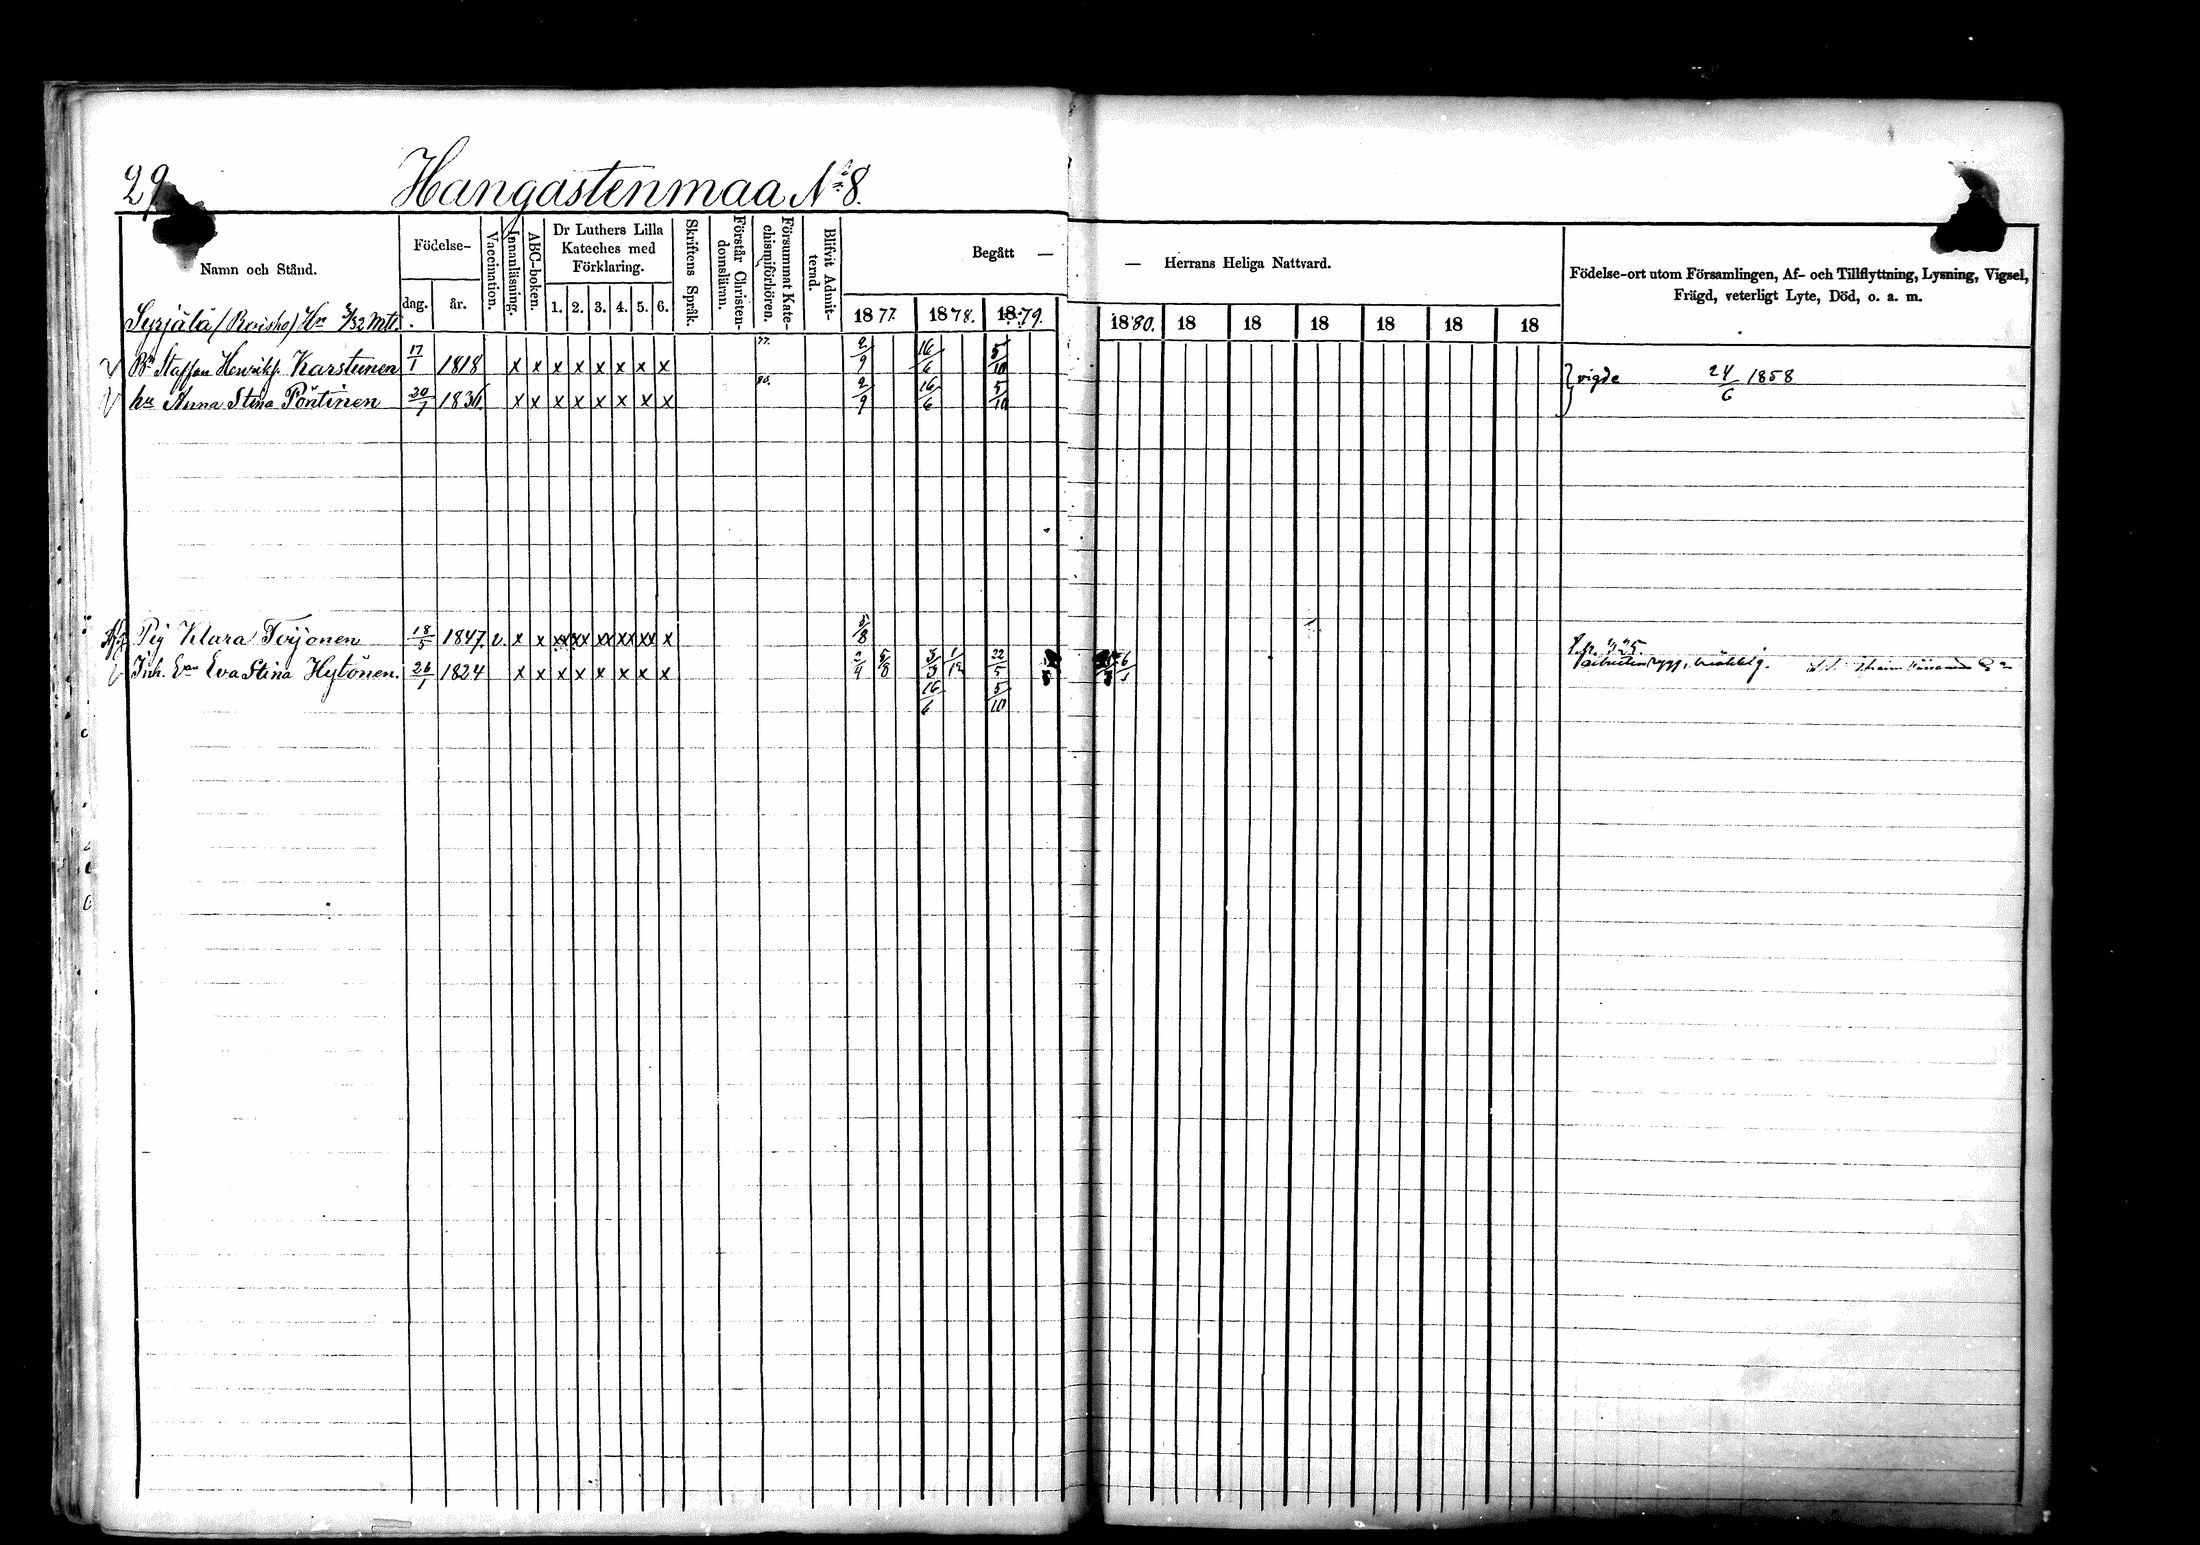 29
Hangastenmaa No 8.
Namn och Stånd.
Födelse-
dag.
år.
Vaccination.
Innanläsning.
ABC-boken.
Dr Luthers Lilla Kateches med Förklaring.
1. 2. 3. 4. 5. 6.
Skriftens Språk.
Förstår Christendomsläran.
Försummat Katechismiförhören.
Blifvit Admitterad.
Begått —
— Herrans Heliga Nattvard.
1877. 1878. 1879. 1880. 18 18 18 18 18 18
Födelse-ort utom Församlingen, Af- och Tillflyttning, Lysning, Vigsel,
Frägd, veterligt Lyte, Död, o. a. m.
Syrjälä 3/32 Mtl.
Bn Staffan Henriksn Karstunen 17/1 1818 x x x x x x x x 77. 2/9 16/6 5/10
hu Anna Stina Pöntinen 1831 x x x x x x x x 80. 2/9 16/6 5/10 vigde 24/6 1858
Pig Klara Toijonen 18/5 1847. v. x x xx xx xx xx xx x 5/8
Inh. Eva Stina Hytönen. 26/1 1824 x x x x x x x x 5/8 22/5 6/1
16/6 5/10